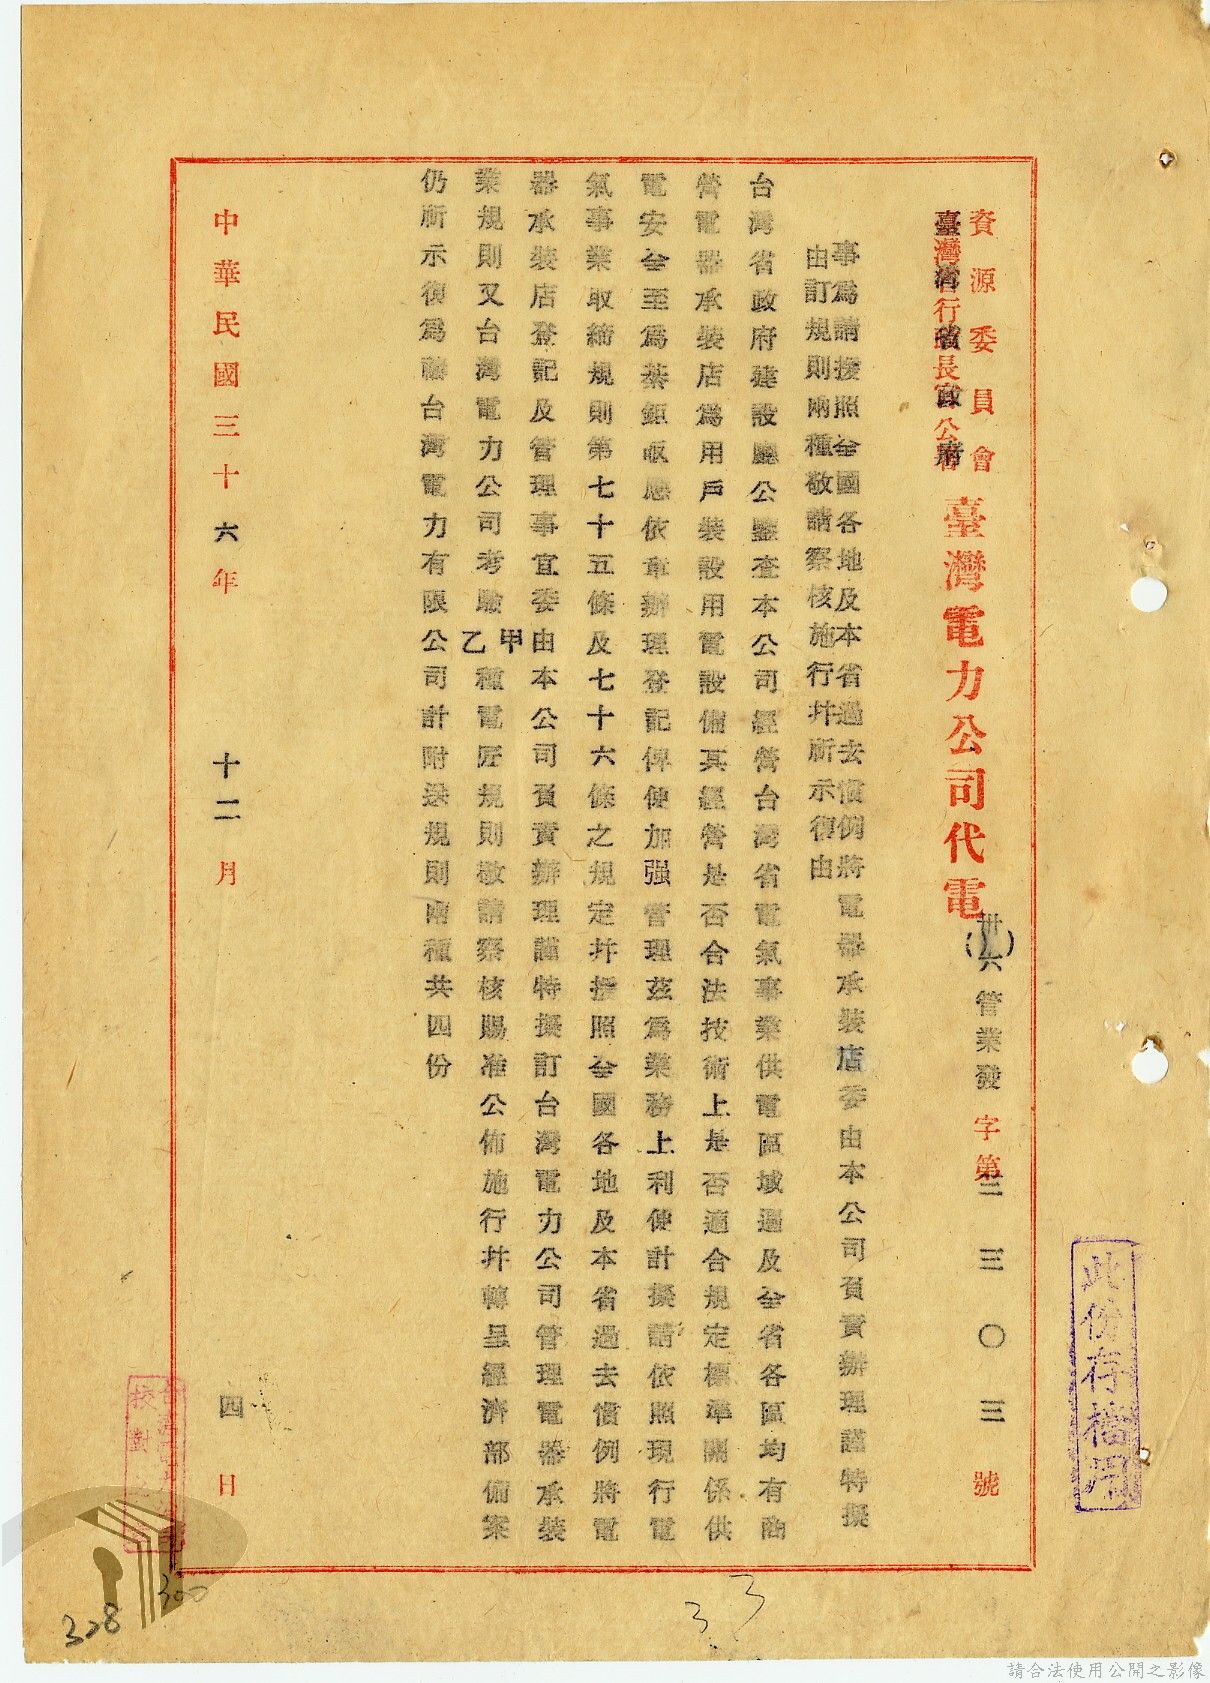 此份存檔用
資源委員會
臺灣省行政長官公署
臺灣電力公司代電(卅六)管業發字第三三〇三號
事爲請援照全國各地及本省過去慣例將電器承裝店委由本公司負責辦理謹特擬
由訂規則兩種敬請察核施行幷祈示復由
台灣省政府建設廳公鑒查本公司經營台灣省電氣事業供電區域遍及全省各區均有商
營電器承裝店爲用戶裝設用電設備其經營是否合法技術上是否適合規定標準關係供
電安全至爲綦鉅亟應依章辦理登記俾便加强管理茲爲業務上利便計擬請依照現行電
氣事業取締規則第七十五條及七十六條之規定幷援照全國各地及本省過去慣例將電
器承裝店登記及管理事宜委由本公司負責辦理謹特擬訂台灣電力公司管理電器承裝
業規則又台灣電力公司考驗甲乙種電匠規則敬請察核賜准公佈施行幷轉呈經濟部備案
仍祈示復爲禱台灣電力有限公司計附送規則兩種共四份
中華民國三十六年十二月四日
33
300
328
請合法使用公開之影像